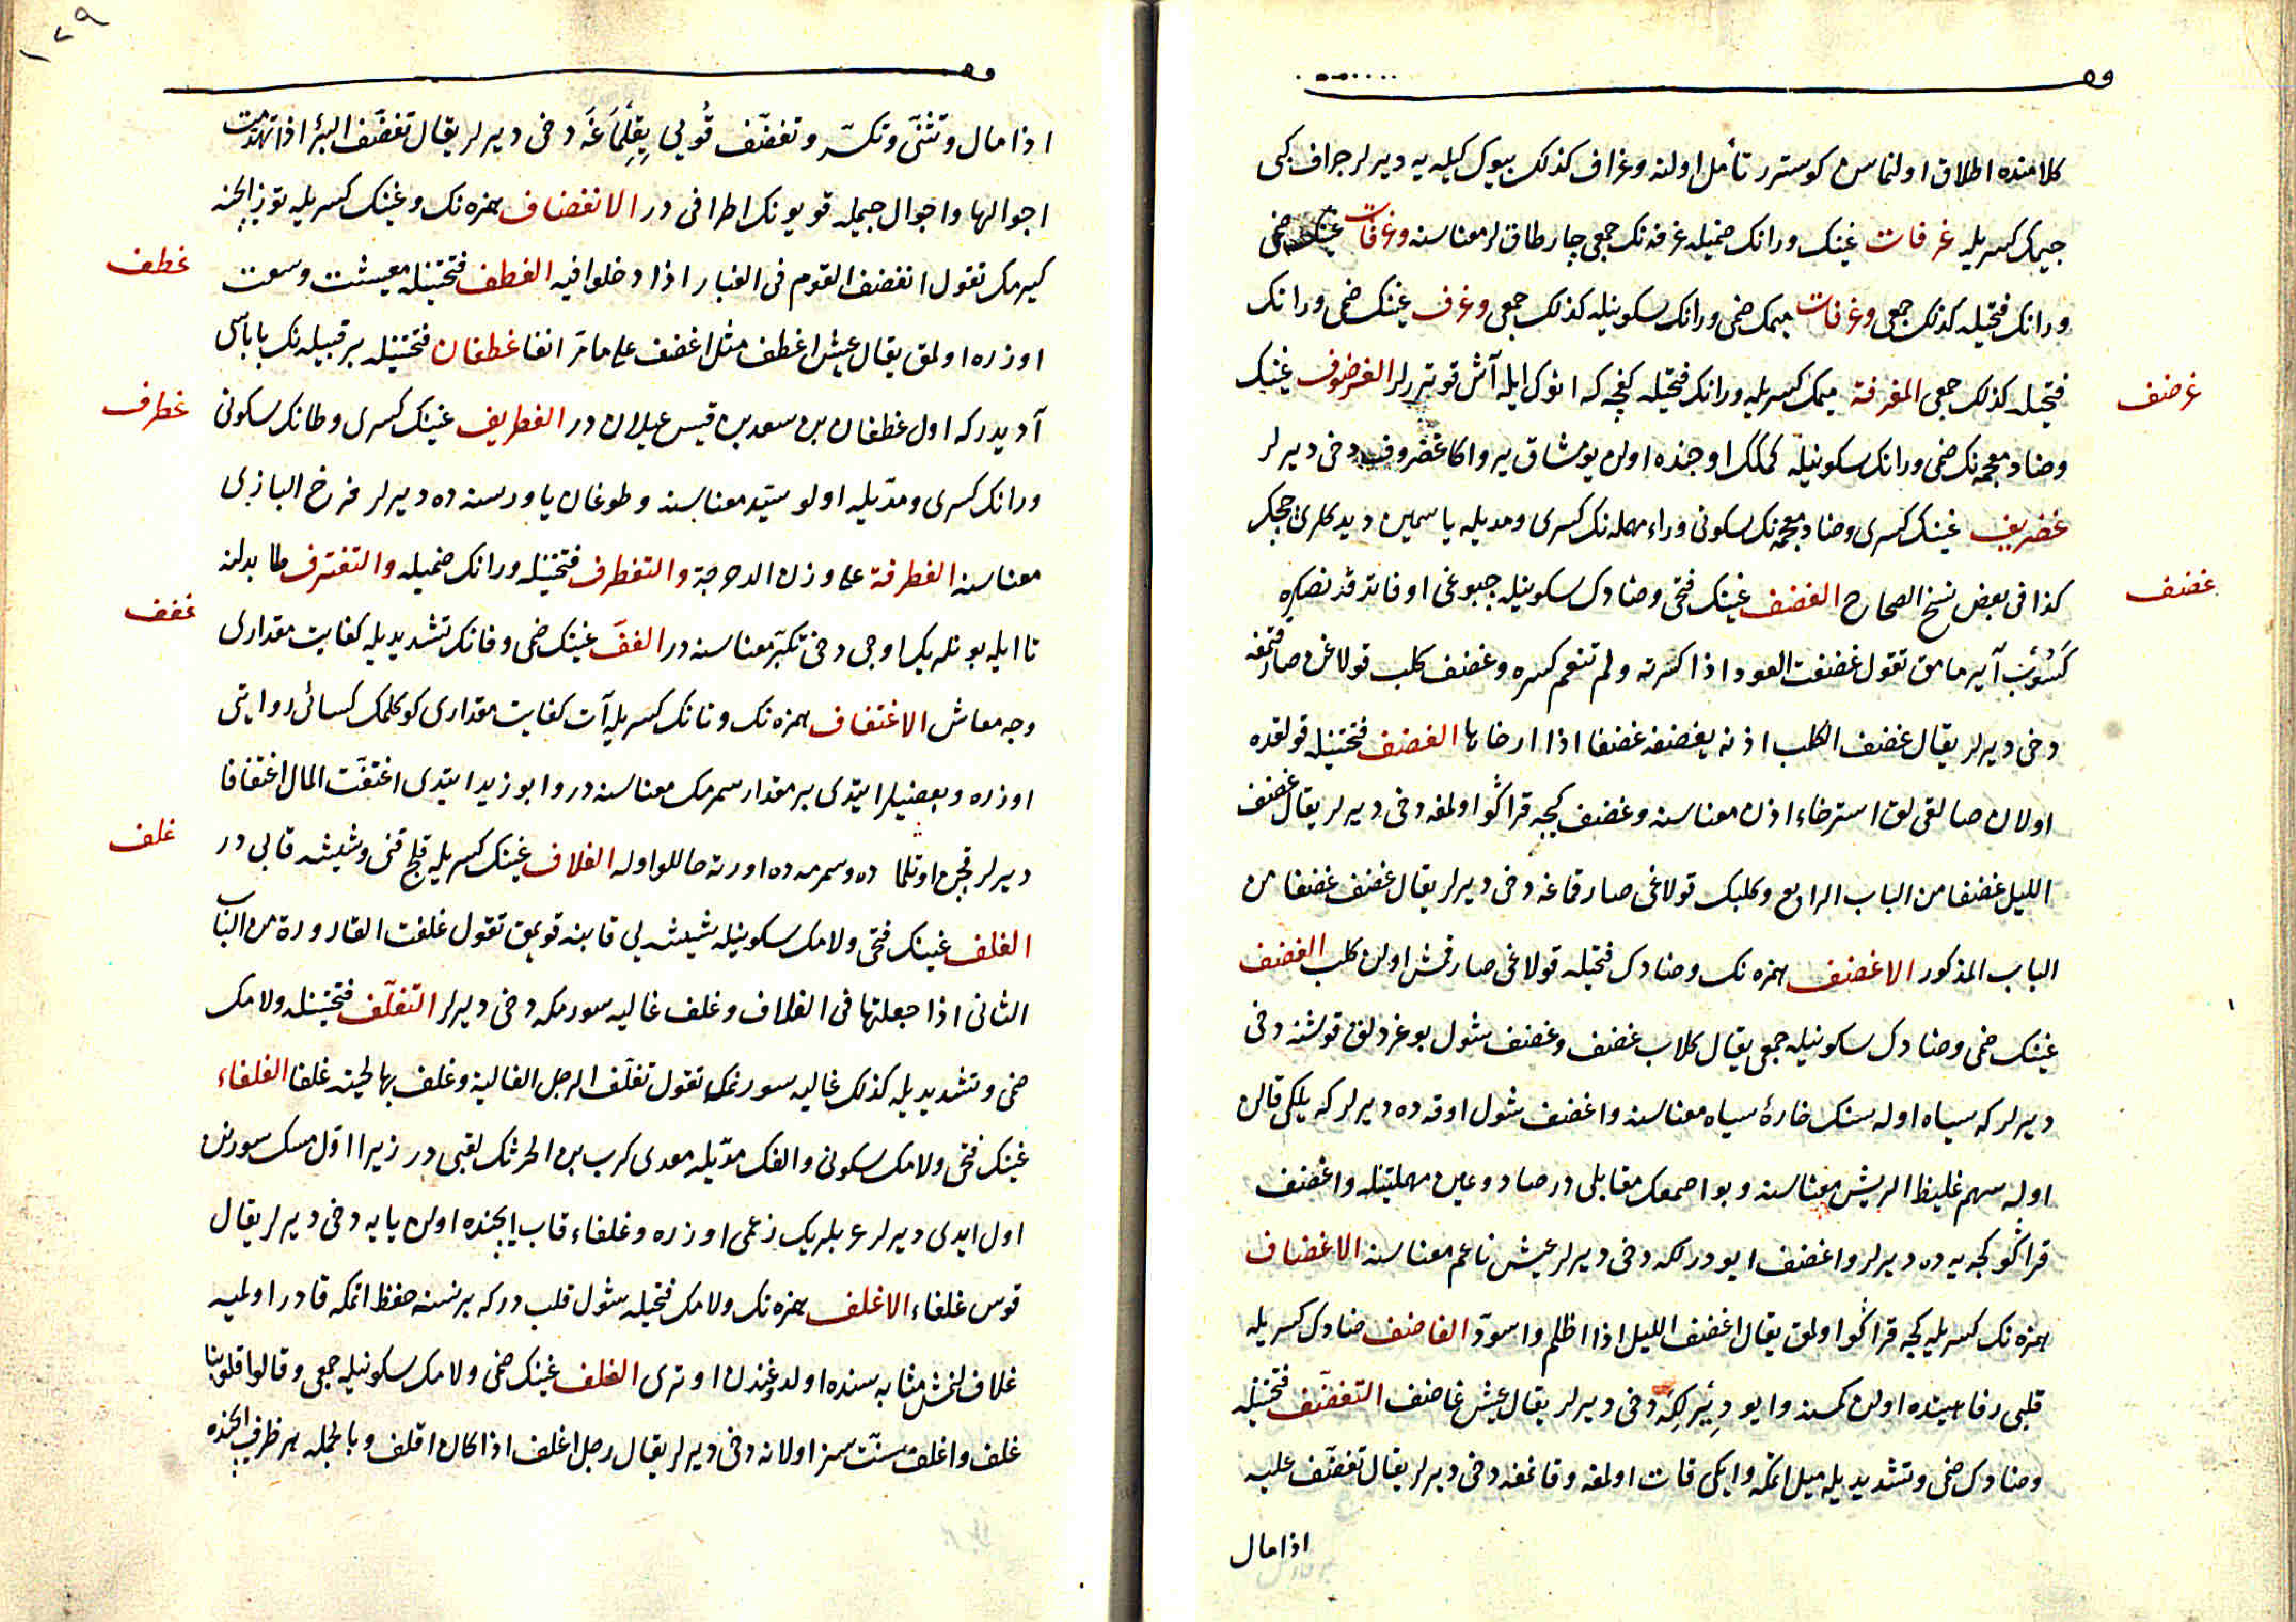 كلامنده اطلاق اولنماسن كوسترر تأمل اولنه وغراف كذلك بيوك كيله يه ديرلر جراف كبى
جيمك كسريله غرفات غينك ورانك ضميله غرفه نك جمعى چارطاقلر معناسنه وغرفات غينك ضمى
ورانك فتحيله كذلك جمعى وغرفات ميمك ضمى ورانك سكونيله كذلك جمعى وغرف غينك ضمى ورانك
غرضف
فتحيله كذلك جمعى المغرفة ميمك كسريله ورانك فتحيله كفچه كه انوك ايله آش قوتررلر الغرضوف غينك
وضاد معجمه نك ضمى ورانك سكونيله كمكك اوجنده اولن يومشاق ير واكا غضروف دخى ديرلر
غضريف غينك كسرى وضاد معجمه نك سكونى وراء مهمله نك كسرى ومديله ياسمين ديدكلرى چچك
غضف
كذا فى بعض نسخ الصحاح الغضف غينك فتحى وضادك سكونيله چبوغى اوفاتدقدنصكره
كسوب آيرمامق تقول غضفت العود اذا كسرته ولم تنعم كسره وغضف كلب قولاغن صارقتمغه
دخى ديرلر يقال غضف الكلب اذنه يغضفه غضفا اذا ارخاها الغضف فتحتينله قولقده
اولان صالقى لق استرخاء اذن معناسنه وغضف كيجه قراكو اولمغه دخى ديرلر يقال غضف
الليل غضفا من الباب الرابع وكلبك قولاغى صارقماغه دخى ديرلر يقال غضف غضفا من
الباب المذكور الاغضف همزه نك وضادك فتحيله قولاغى صارقمش اولن كلب الغضف
غينك ضمى وضادك سكونيله جمعى يقال كلاب غضف وغضف شول بوغردلق قوشنه دخى
ديرلر كه سياه اوله سنك خارهٔ سياه معناسنه واغضف شول اوقه ده ديرلر كه يلكى قالن
اوله سهم غليظ الريش معناسنه وبو اصمعك مقابلى در صاد وعين مهملتينله واغضف
قراكو كجه يه ده ديرلر واغضف ايودرلكه دخى ديرلر عيش ناعم معناسنه الاغضاف
همزه نك كسريله كجه قراكو اولمق يقال اغضف الليل اذا اظلم واسودّ الغاضف ضادك كسريله
قلبى رفاهيتده اولن كمسنه وايو ديرلكه دخى ديرلر يقال عيش غاضف التغضّف فتحتينله
وضادك ضمى وتشديديله ميل اتمكه وايكى قات اولمغه وقانمغه دخى ديرلر يقال تغضّف عليه
اذا مال
١٢٩
اذا مال وتثنّى وتكسّر وتغضّف قويى يقلماغه دخى ديرلر يقال تغضّف البئر اذا تهدمت
اجوالها واجوال جيمله قويونك اطرافى در الانغضاف همزه نك وغينك كسريله توز ايچنه
غطف
كيرمك تقول انغضف القوم فى الغبار اذا دخلوا فيه الغطف فتحتينله معيشت وسعت
اوزره اولمق يقال عيش اغطف مثل اغضف على ما مرّ انفا غطفان فتحتينله بر قبيله نك باباسى
غطرف
آديدر كه اول غطفان بن سعد بن قيس عيلان در الغطريف غينك كسرى وطانك سكونى
ورانك كسرى ومدّيله اولو سيّد معناسنه وطوغان ياوريسنه ده ديرلر فرخ البازى
معناسنه الغطرفة على وزن الدحرجة والتغطرف فتحتينله ورانك ضميله والتغترف طا بدلنه
غفف
تا ايله بونلريك اوچى دخى تكبّر معناسنه در الغفّ غينك ضمى وفانك تشديديله كفايت مقدارى
وجه معاش الاغتفاف همزه نك وتانك كسريله آت كفايت مقدارى كوكلمك كسائى روايتى
اوزره وبعضيلر ايتدى بر مقدار سمرمك معناسنه در وابو زيد ايتدى اغتفّت المال اغتفافا
غلف
ديرلر قچن اوتلماده وسمرمه ده اورته حاللو اوله الغلاف غينك كسريله قلج قنى وشيشه قابى در
الغلف غينك فتحى ولامك سكونيله شيشه يى قابنه قويمق تقول غلفت القارورة من الباب
الثانى اذا جعلتها فى الغلاف وغلف غاليه سورمكه دخى ديرلر التغلّف فتحتينله ولامك
ضمى وتشديديله كذلك غاليه سورنمك تقول تغلّف الرجل الغالية وغلف بها لحيته غلفا الغلفاء
غينك فتحى ولامك سكونى والفك مدّيله معدى كرب بن الحرثك لقبى در زيرا اوّل مسك سورنن
اول ايدى ديرلر عربلريك زعمى اوزره وغلفاء قاب ايچنده اولن يايه دخى ديرلر يقال
قوس غلفاء الاغلف همزه نك ولامك فتحيله شول قلب دركه بر نسنه حفظ اتمكه قادر اولميه
غلاف لنمش مثابه سنده اولدوغندن اوترى الغلف غينك ضمى ولامك سكونيله جمعى وقالوا قلوبنا
غلف واغلف سنّت سز اولانه دخى ديرلر يقال رجل اغلف اذا كان اقلف وبالجمله هر ظرف ايچنده